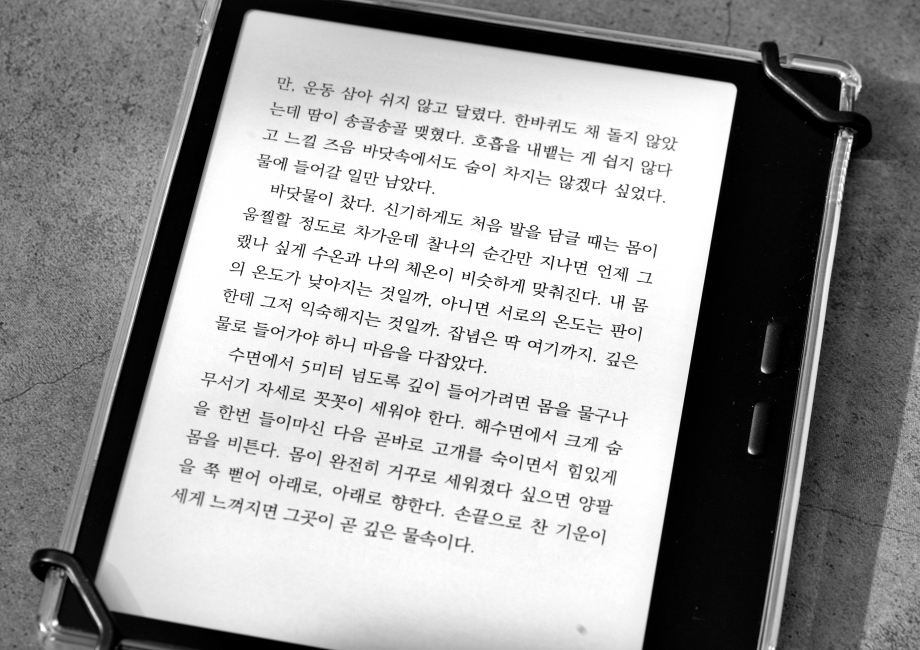 만, 운동 삼아 쉬지 않고 달렸다. 한바퀴도 채 돌지 않았
는데 땀이 송골송골 맺혔다. 호흡을 내뱉는 게 쉽지 않다
고 느낄 즈음 바닷속에서도 숨이 차지는 않겠다 싶었다.
물에 들어갈 일만 남았다.
바닷물이 찼다. 신기하게도 처음 발을 담글 때는 몸이
움찔할 정도로 차가운데 찰나의 순간만 지나면 언제 그
랬나 싶게 수온과 나의 체온이 비슷하게 맞춰진다. 내 몸
의 온도가 낮아지는 것일까, 아니면 서로의 온도는 판이
한데 그저 익숙해지는 것일까. 잡념은 딱 여기까지. 깊은
물로 들어가야 하니 마음을 다잡았다.
수면에서 5미터 넘도록 깊이 들어가려면 몸을 물구나
무서기 자세로 꼿꼿이 세워야 한다. 해수면에서 크게 숨
을 한번 들이마신 다음 곧바로 고개를 숙이면서 힘있게
몸을 비튼다. 몸이 완전히 거꾸로 세워졌다 싶으면 양팔
을 쭉 뻗어 아래로, 아래로 향한다. 손끝으로 찬 기운이
세게 느껴지면 그곳이 곧 깊은 물속이다.